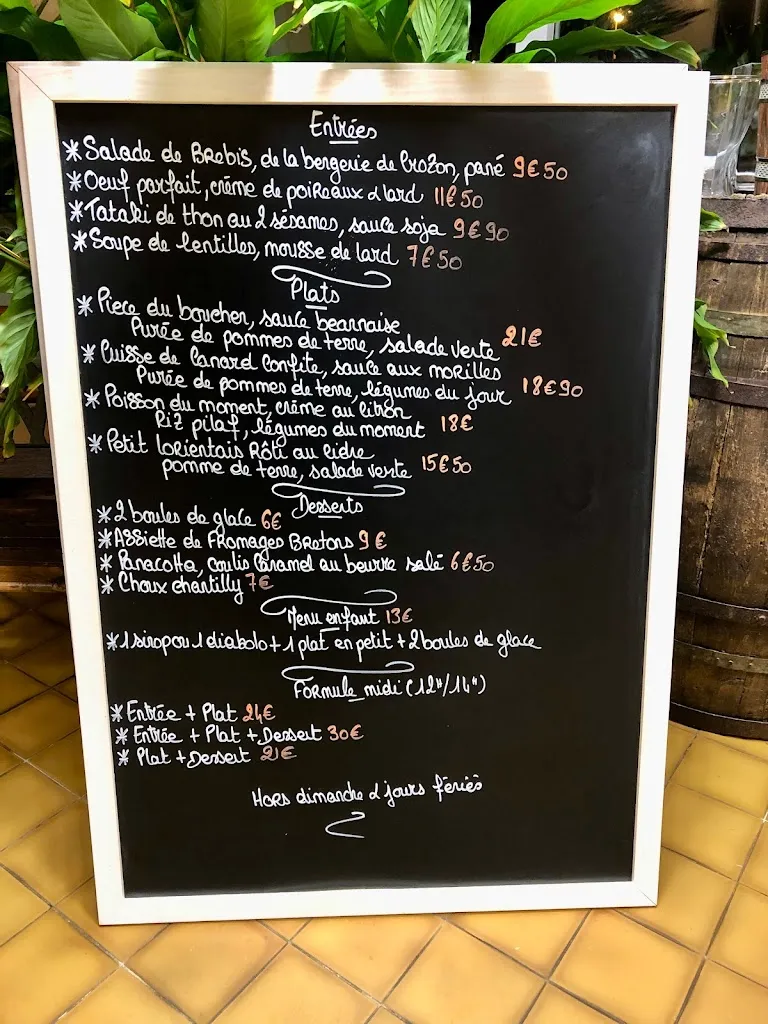 Entrées
* Salade de Brebis, de la bergerie de Crozon, pané 9€50
* Oeuf parfait, crème de poireaux & lard 11€50
* Tataki de thon au 2 sésames, sauce soja 9€90
* Soupe de lentilles, mousse de lard 7€50
Plats
* Piece du boucher, sauce bearnaise
Purée de pommes de terre, salade verte 21€
* Cuisse de Canard Confite, sauce aux morilles
Purée de pommes de terre, légumes du jour 18€90
* Poisson du moment, crème au citron
Riz pilaf, légumes du moment 18€
* Petit lorientais Rôti au cidre
pomme de terre, salade verte 15€50
Desserts
* 2 boules de glace 6€
* Assiette de Fromages Bretons 9€
* Panacotta, coulis Caramel au beurre salé 6€50
* Choux chantilly 7€
Menu enfant 13€
* 1 sirop ou 1 diabolo + 1 plat en petit + 2 boules de glace
Formule midi (12H/14H)
* Entrée + Plat 24€
* Entrée + Plat + Dessert 30€
* Plat + Dessert 21€
Hors dimanche & jours fériés